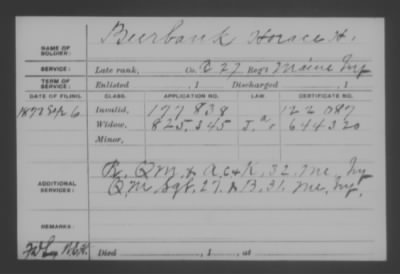 NAME OF SOLDIER: Burbank Horace H.
SERVICE: Late rank, Co. B 27 Reg't Maine Inf
TERM OF SERVICE: Enlisted , 1 Discharged , 1
DATE OF FILING. CLASS. APPLICATION NO. LAW. CERTIFICATE NO.
1872 Sep 6 Invalid, 177 838 122 087
Widow, 825,345 644320
Minor,
ADDITIONAL SERVICES: K. 32. Me. Inf
Q M Sgt. 27. & B. 31. Me. Inf.
REMARKS:
Died , 1 , at